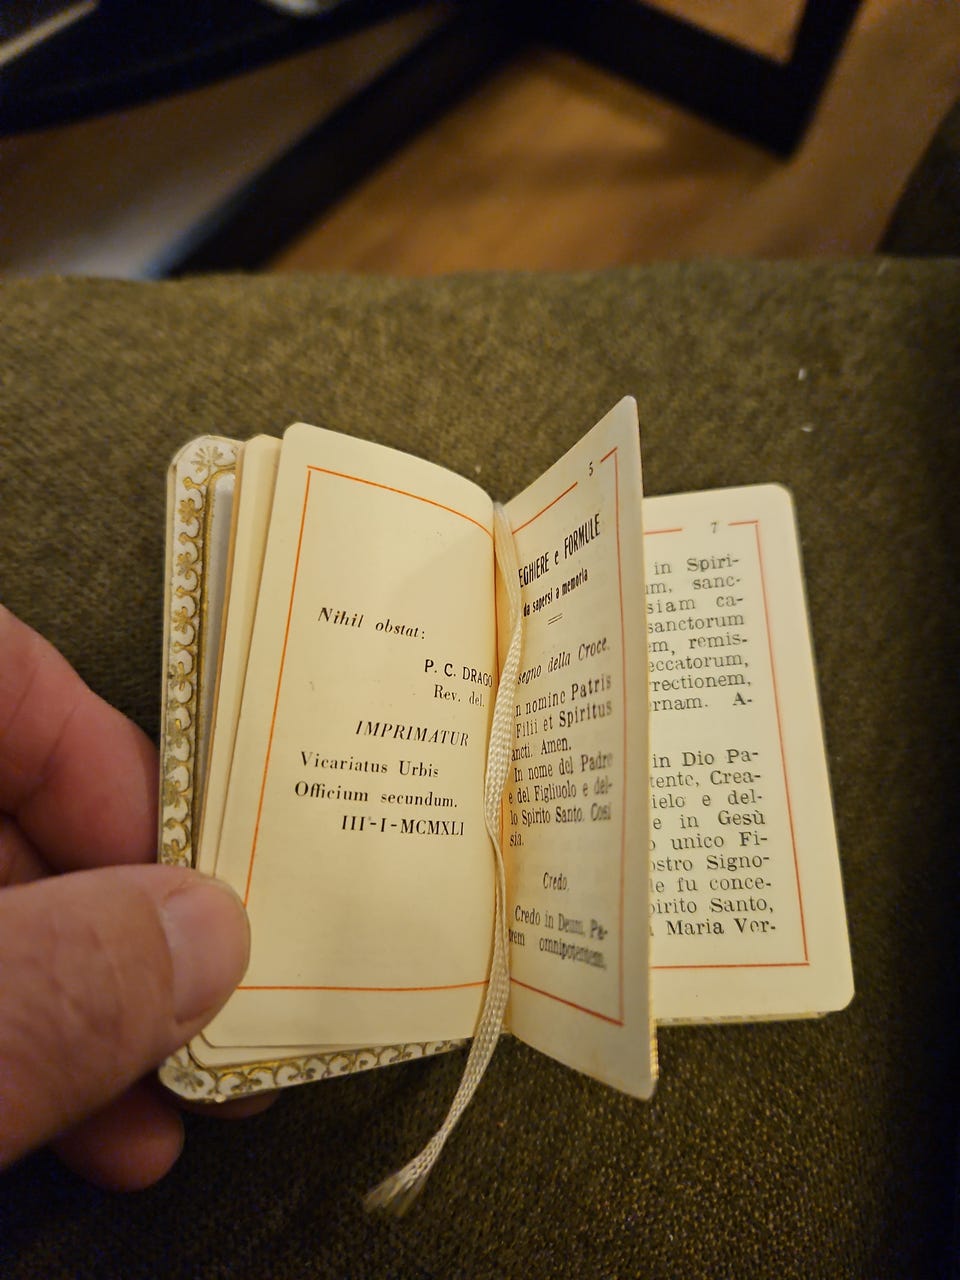 Nihil obstat:
P. C. DRAGO
Rev. del.
IMPRIMATUR
Vicariatus Urbis
Officium secundum.
III-I-MCMXLI
5
EGHIERE e FORMULE
da sapersi a memoria
segno della Croce.
n nomine Patris
Filii et Spiritus
ancti. Amen.
In nome del Padre
e del Figliuolo e del-
lo Spirito Santo. Così
sia.
Credo.
Credo in Deum, Pa-
trem omnipotentem,
7
in Spiri-
um, sanc-
siam ca-
sanctorum
em, remis-
eccatorum,
rrectionem,
ernam. A-
in Dio Pa-
tente, Crea-
ielo e del-
e in Gesù
o unico Fi-
ostro Signo-
le fu conce-
pirito Santo,
Maria Ver-